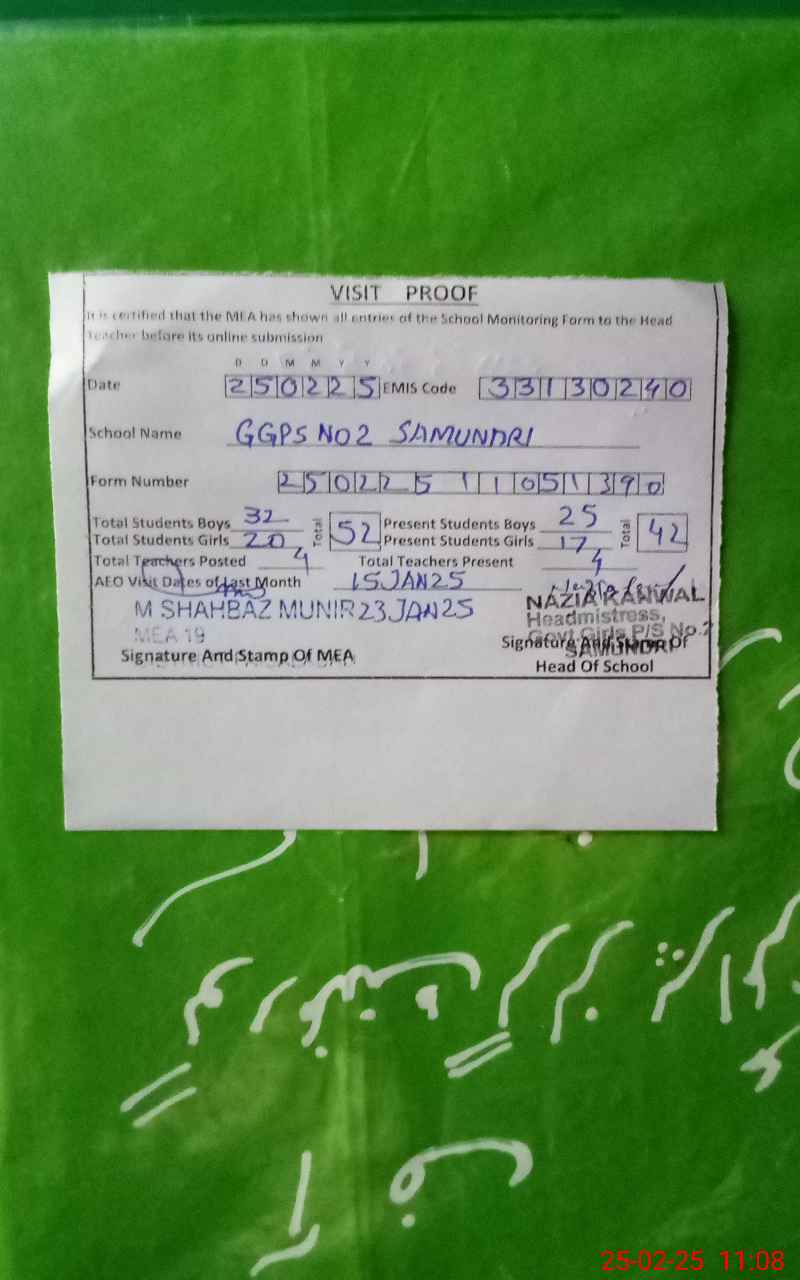 VISIT PROOF
It is certified that the MEA has shown all entries of the School Monitoring Form to the Head
Teacher before its online submission
D D M M Y Y
Date 250225 EMIS Code 33130240
School Name GGPS NO2 SAMUNDRI
Form Number 250225 11051390
Total Students Boys 32 Total 52 Present Students Boys 25 Total 42
Total Students Girls 20 Present Students Girls 17
Total Teachers Posted 4 Total Teachers Present 4
AEO Visit Dates of Last Month 15JAN25
M SHAHBAZ MUNIR 23JAN25 NAZIA KANWAL
MEA 19 Headmistress,
Govt Girls P/S No.2
SAMUNDRI
Signature And Stamp Of MEA Signature And Stamp Of
Head Of School
25-02-25 11:08